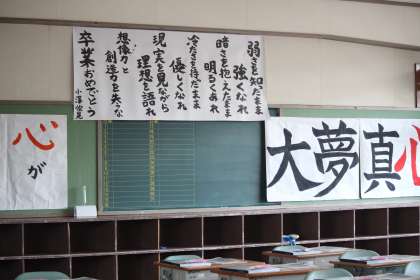 弱さを知たまま
強くなれ
暗さを抱えたまま
明るくあれ
冷たさを待たまま
優しくなれ
現実を見ながら
理想を語れ
想像力と
創造力を失うな
卒業おめでとう
大夢真心
心が